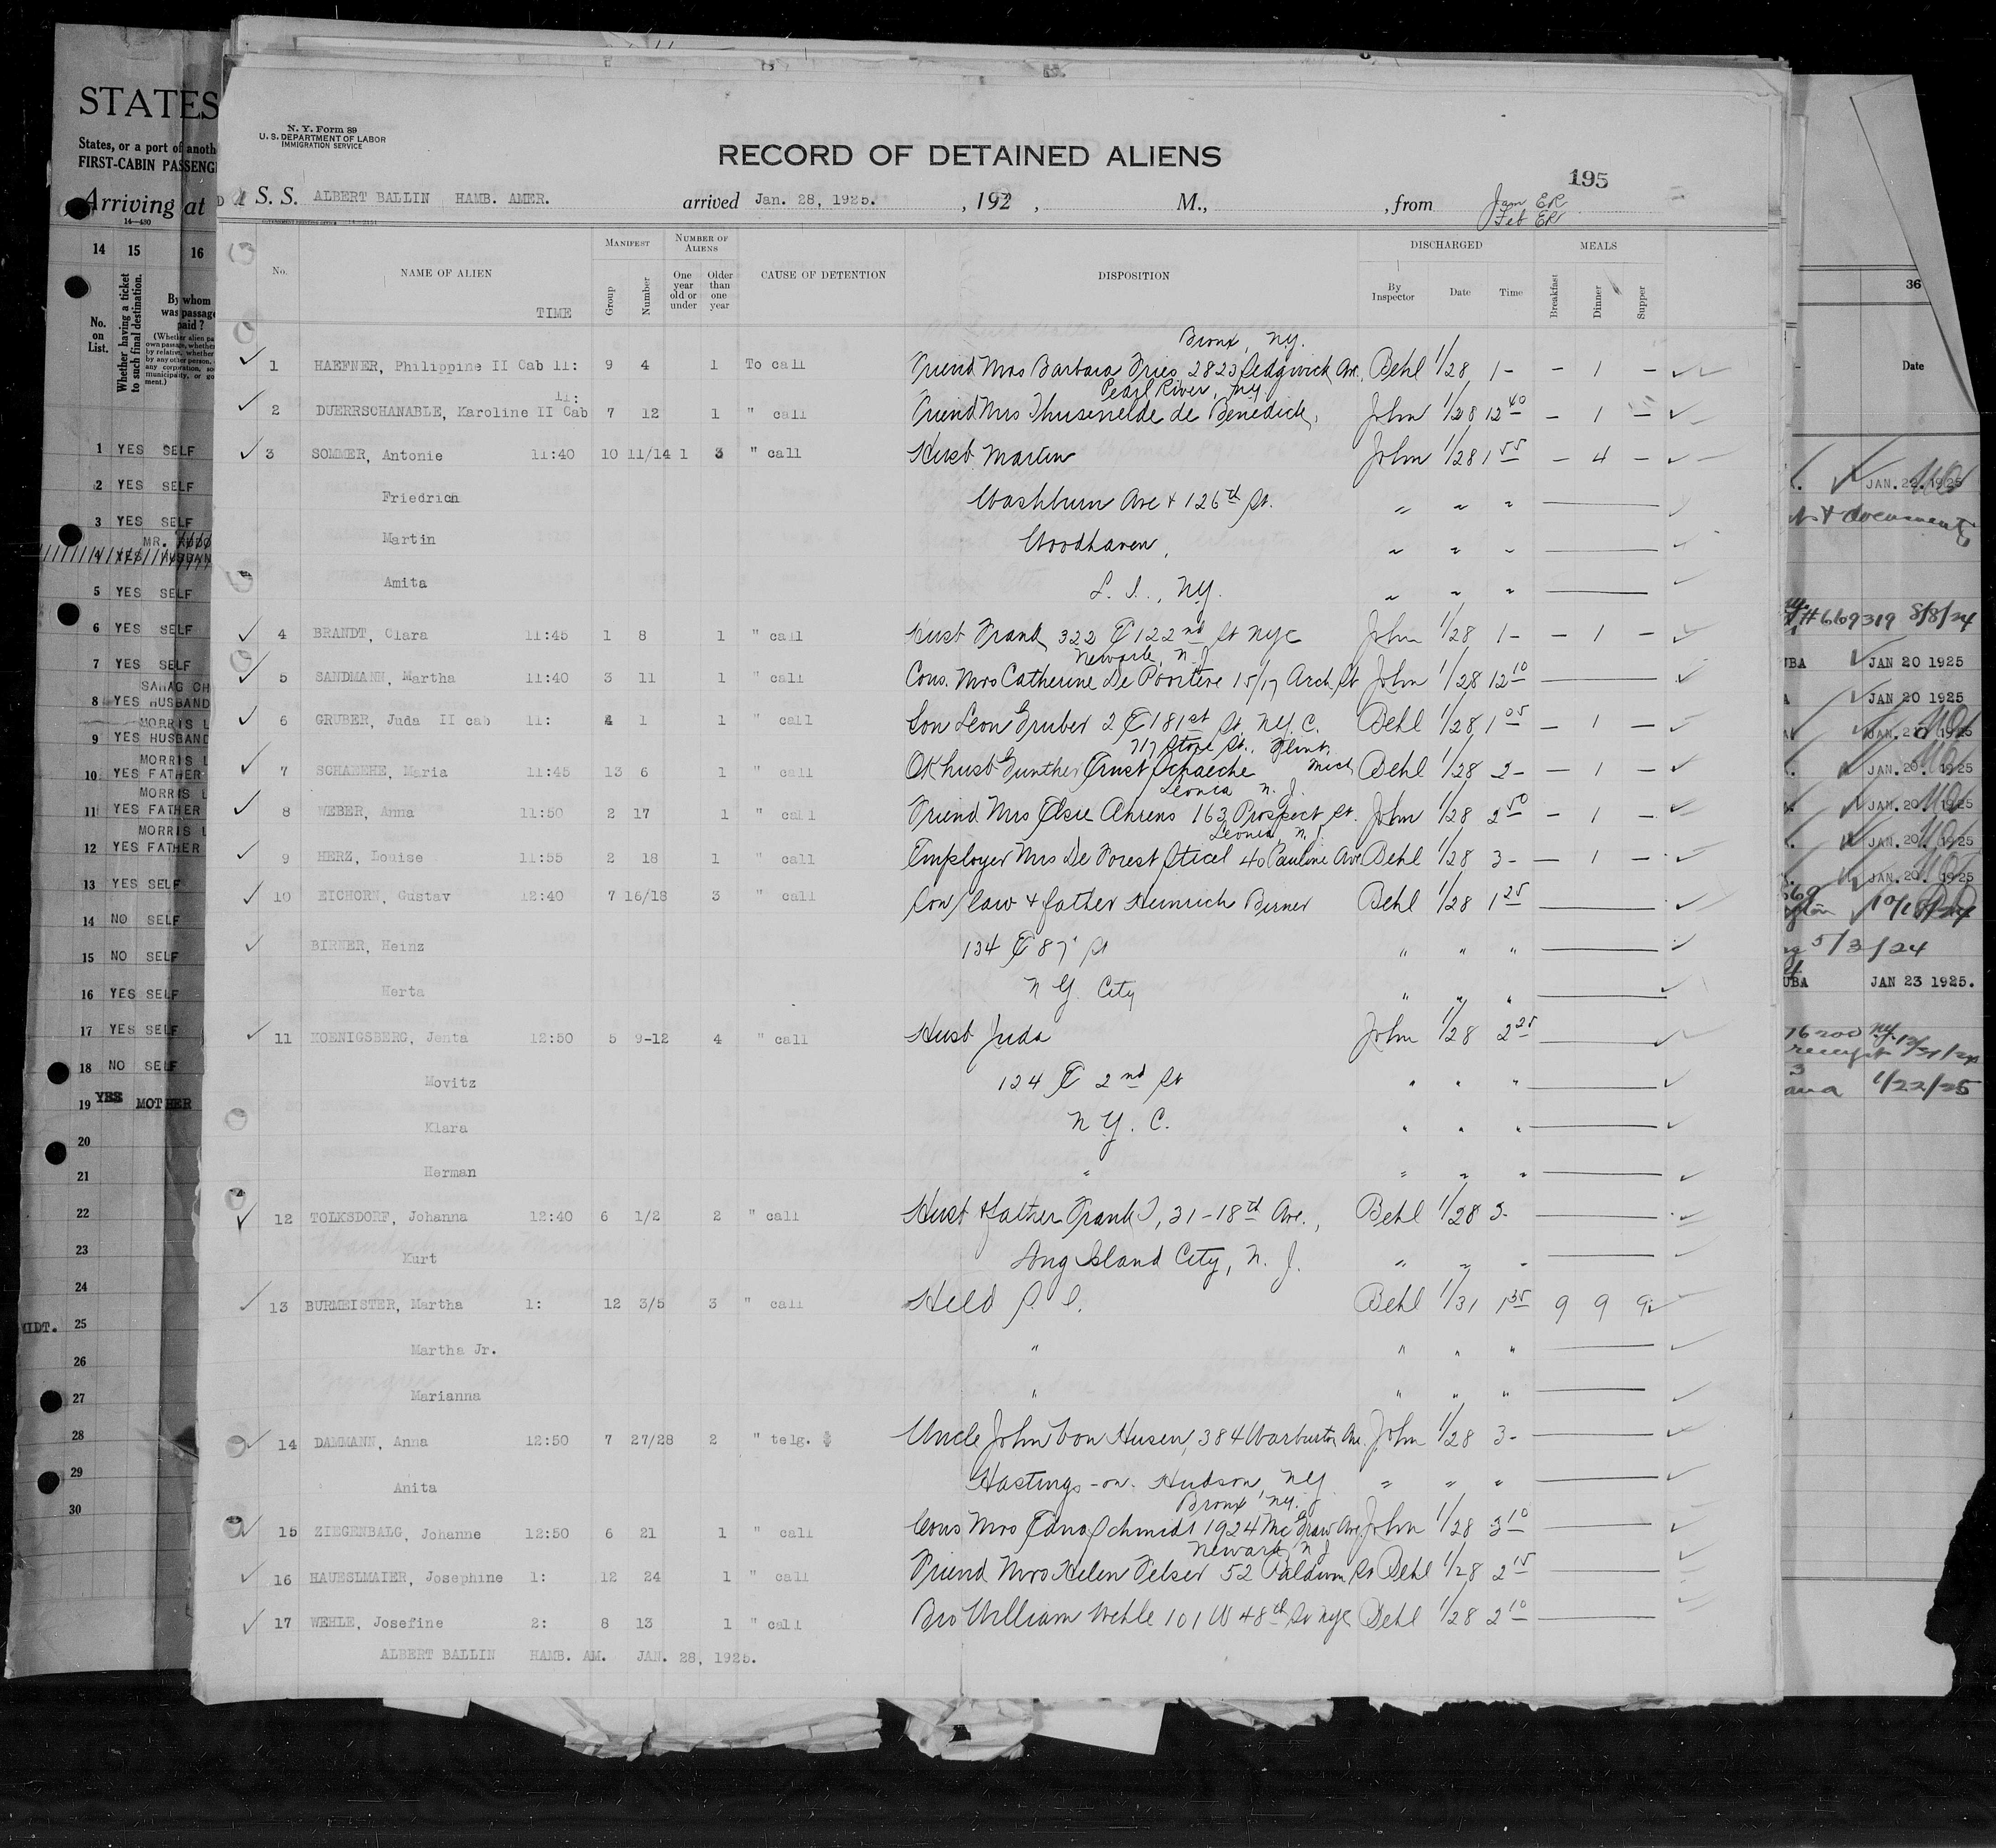 STATES
States, or a port of anoth
FIRST-CABIN PASSENG
Arriving at
14—430
14 15 16
No. on List.
Whether having a ticket to such final destination.
By whom was passage paid?
1 YES SELF
2 YES SELF
3 YES SELF
5 YES SELF
6 YES SELF
7 YES SELF
8 YES HUSBAND
MORRIS L
9 YES HUSBAND
MORRIS L
10 YES FATHER
MORRIS L
11 YES FATHER
MORRIS L
12 YES FATHER
13 YES SELF
14 NO SELF
15 NO SELF
16 YES SELF
17 YES SELF
18 NO SELF
19 YES MOTHER
20
21
22
23
24
MIDT. 25
26
27
28
29
30
N. Y. Form 89
U. S. DEPARTMENT OF LABOR
IMMIGRATION SERVICE
RECORD OF DETAINED ALIENS
195
S. S. ALBERT BALLIN HAMB. AMER. arrived Jan. 28, 1925. , 192 , M., , from Jan ER
Feb ER
No. NAME OF ALIEN TIME MANIFEST Group Number NUMBER OF ALIENS One year old or under Older than one year CAUSE OF DETENTION DISPOSITION DISCHARGED By Inspector Date Time MEALS Breakfast Dinner Supper
Bronx, N.Y.
1 HAEFNER, Philippine II Cab 11: 9 4 1 To call Friend Mrs Barbara Fries 2823 Sedgwick Ave. Behl 1/28 1- – 1 –
Pearl River, NY
2 DUERRSCHANABLE, Karoline II Cab 11: 7 12 1 " call Friend Mrs Thusenelde de Benedick, John 1/28 12 40 – 1 –
3 SOMMER, Antonie 11:40 10 11/14 1 3 " call Husb Martin John 1/28 1 55 – 4 –
Friedrich Washburn Ave + 126th St. " " "
Martin Woodhaven, " " "
Amita L. I., N.Y. " " "
4 BRANDT, Clara 11:45 1 8 1 " call Husb Frank 322 E 122nd St NYC John 1/28 1- – 1 –
Newark, N.J
5 SANDMANN, Martha 11:40 3 11 1 " call Cous. Mrs Catherine De Poortere 15/17 Arch St John 1/28 12 10
6 GRUBER, Juda II cab 11: 4 1 1 " call Son Leon Gruber 2 E 181st St. N.Y.C. Behl 1/28 1 05 – 1 –
717 Stone St. Flint, Mich
7 SCHAEEHE, Maria 11:45 13 6 1 " call OK husb Gunther Ernst Schaeche Behl 1/28 2- – 1 –
Leonia N. J.
8 WEBER, Anna 11:50 2 17 1 " call Friend Mrs Elsie Ahrens 163 Prospect St. John 1/28 2 50 – 1 –
Leonia, N. J.
9 HERZ, Louise 11:55 2 18 1 " call Employer Mrs De Forest Sticel 40 Pauline Ave Behl 1/28 3- – 1 –
10 EICHORN, Gustav 12:40 7 16/18 3 " call Son/law + father Heinrich Birner Behl 1/28 1 25
BIRNER, Heinz 134 E 87 St " " "
Herta N Y. City " " "
11 KOENIGSBERG, Jenta 12:50 5 9-12 4 " call Husb Juda John 1/28 2 25
Movitz 124 E 2nd St " " "
Klara N.Y.C. " " "
Herman " " " "
12 TOLKSDORF, Johanna 12:40 6 1/2 2 " call Husb + father Frank T, 31-18th Ave., Behl 1/28 3-
Kurt Long Island City, N. J. " " "
13 BURMEISTER, Martha 1: 12 3/5 3 " call Held S. I. Behl 1/31 1 35 9 9 9
Martha Jr. " " " "
Marianna " " " "
14 DAMMANN, Anna 12:50 7 27/28 2 " telg. $ Uncle John Von Husen, 384 Warburton Ave. John 1/28 3-
Anita Hastings-on-Hudson, N.Y. " " "
Bronx N.Y.
15 ZIEGENBALG, Johanne 12:50 6 21 1 " call Cous Mrs Edna Schmidt 1924 McGraw Ave John 1/28 3 10
Newark N J
16 HAUESLMAIER, Josephine 1: 12 24 1 " call Friend Mrs Helen Felser 52 Baldwin St Behl 1/28 2 15
17 WEHLE, Josefine 2: 8 13 1 " call Bro William Wehle 101 W 48th St NYC Behl 1/28 2 10
ALBERT BALLIN HAMB. AM. JAN. 28, 1925.
36
Date
JAN. 22. 1925
#669319 8/8/24
UBA JAN 20 1925
JAN 20 1925
JAN. 20. 1925
JAN. 20. 1925
JAN. 20. 1925
JAN. 20. 1925
5/3/24
UBA JAN 23 1925.
1/22/25